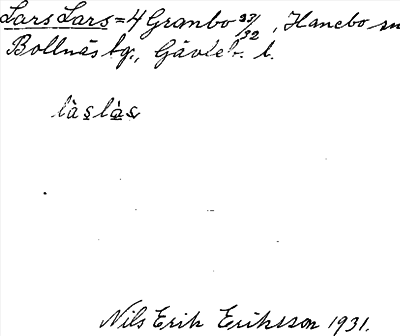 Lars Lars = 4 Granbo 23/32, Hanebo sn
Bollnäs tg., Gävleb. l.
làslàs
Nils Erik Eriksson 1931.